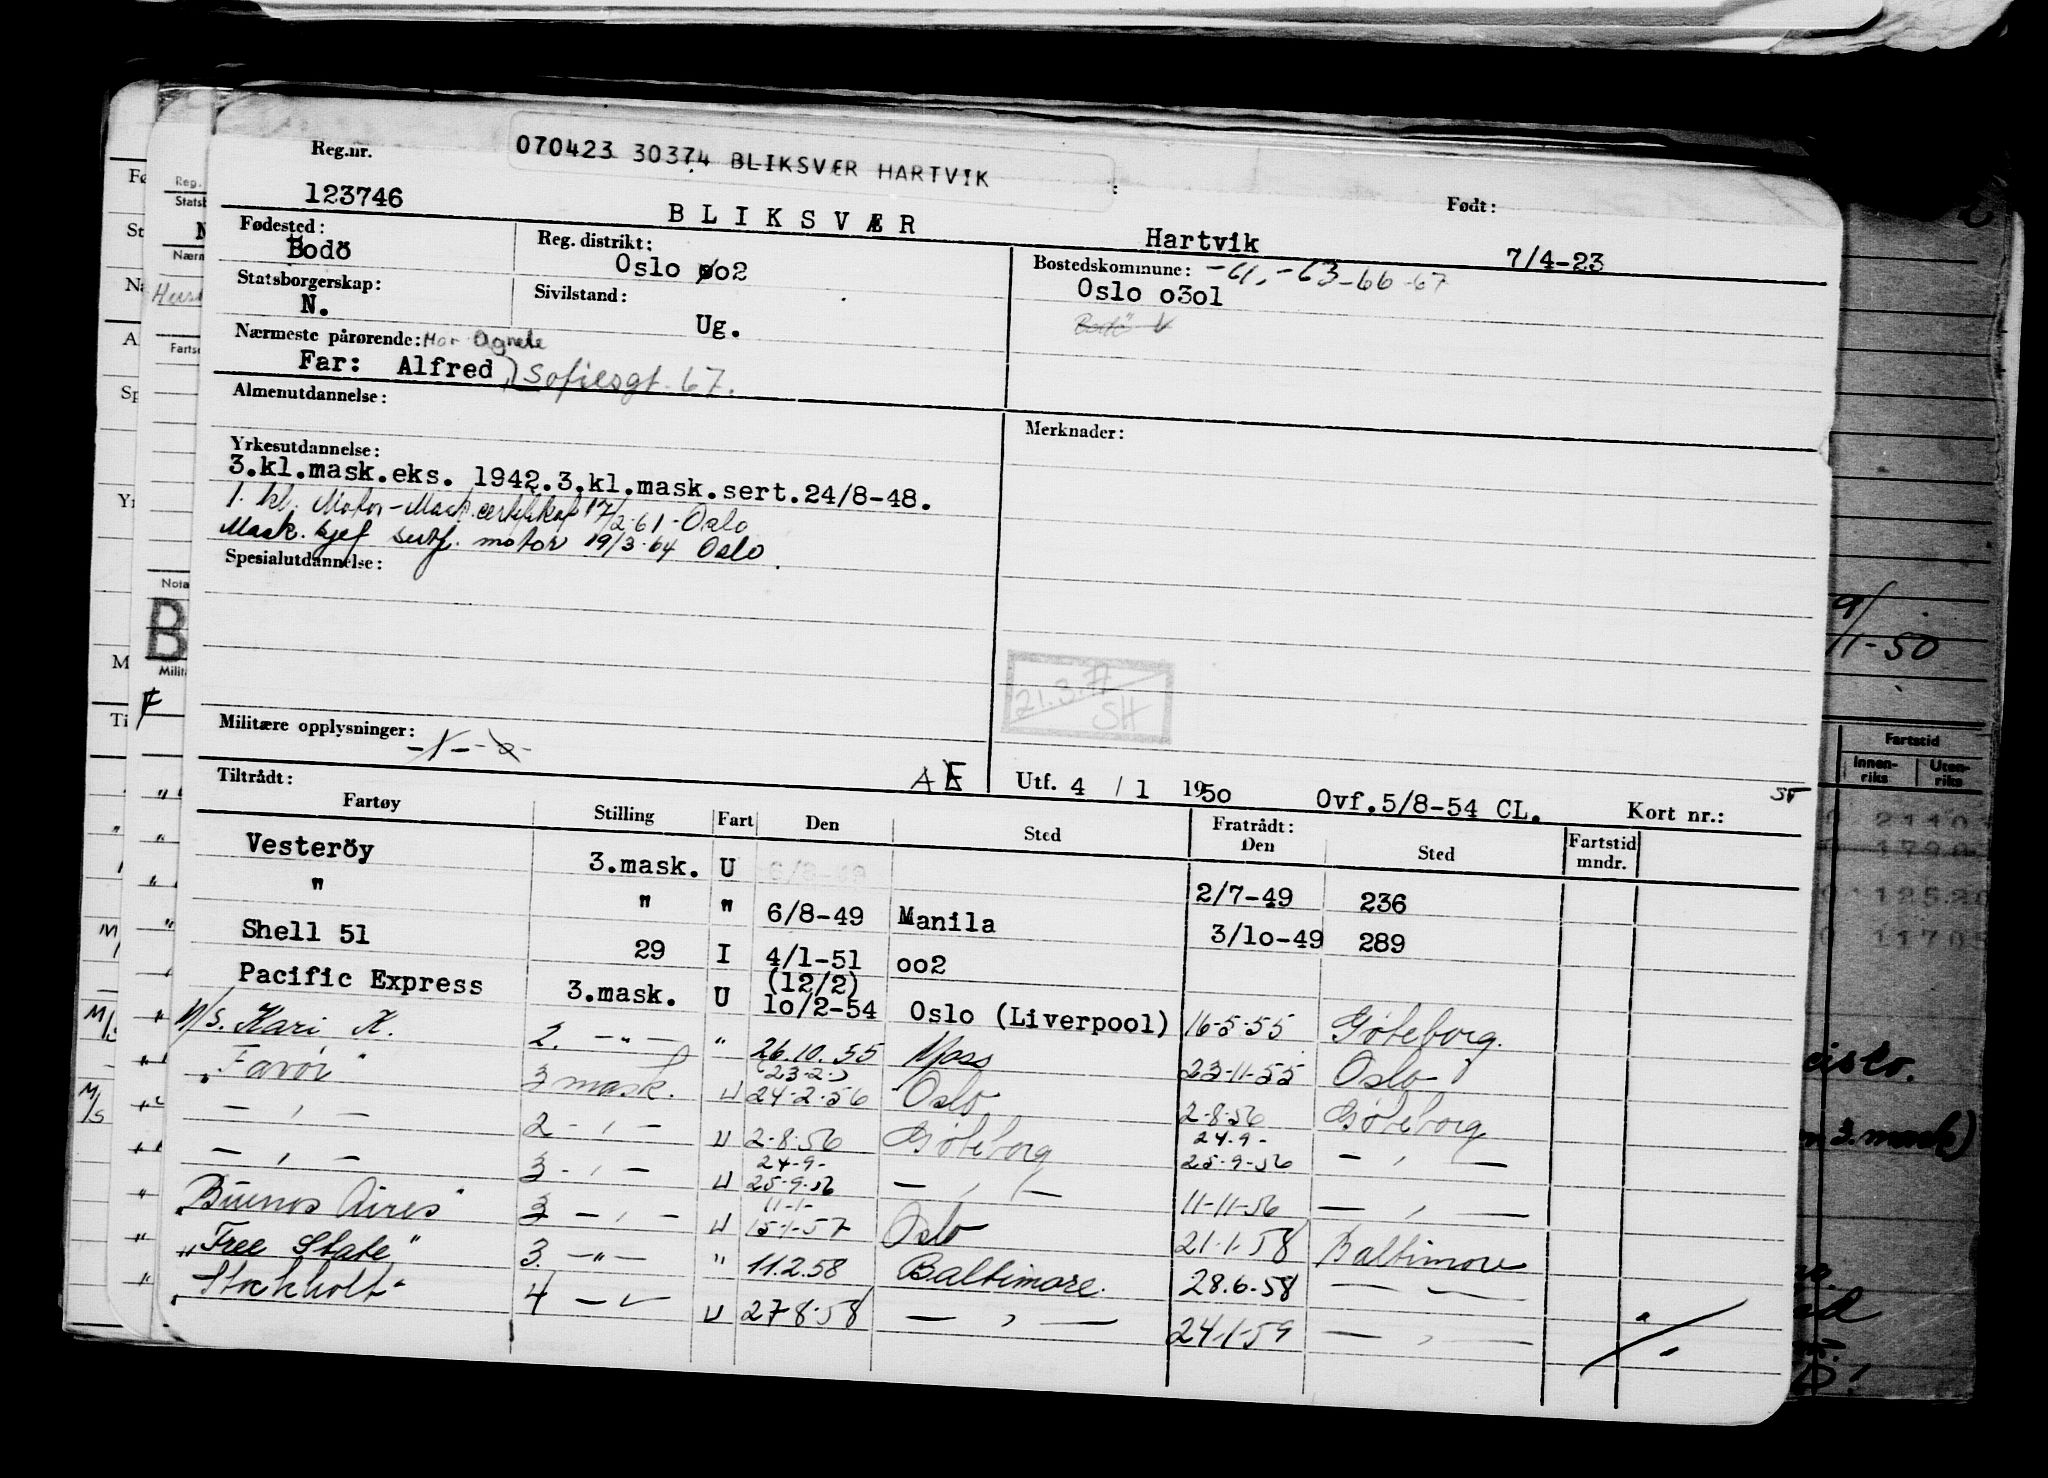 070423 30374 BLIKSVÆR HARTVIK
Reg.nr. Født:
123746 BLIKSVÆR Hartvik 7/4-23
Fødested: Reg. distrikt: Bostedskommune: -61,-63-66-67
Bodö Oslo oo2 Oslo o3o1
Statsborgerskap: Sivilstand: Bodö
N. Ug.
Nærmeste pårørende: Mor Agnete
Far: Alfred Sofiesgt. 67.
Almenutdannelse: Merknader:
Yrkesutdannelse:
3.kl.mask.eks. 1942.3.kl.mask.sert.24/8-48.
1. kl. Motor-Mask. certifikat 17/2-61-Oslo
Mask. sjef sertf. motor 19/3-64 Oslo.
Spesialutdannelse:
21.3.77
SH
Militære opplysninger:
Tiltrådt: AE Utf. 4 / 1 1950 Ovf.5/8-54 CL. Kort nr.:
Fartøy Stilling Fart Den Sted Fratrådt: Den Sted Fartstid mndr.
Vesteröy 3.mask. U 2/7-49 236
" " " 6/8-49 Manila 3/1o-49 289
Shell 51 29 I 4/1-51 oo2
Pacific Express 3.mask. U (12/2) 1o/2-54 Oslo (Liverpool) 16-5-55 Göteborg.
M/S. Kari K. 2. -"- " 26.10.55 Moss 23-11-55 Oslo
" Favör " 3 mask. U 23-2- 24-2-56 Oslo 2-8-56 Göteborg
- , - 2 - , - U 2-8-56 Göteborg 24-9- 25-9-56 - , -
- , - 3 - , - U 24-9- 25-9-56 - , - 11-11-56 - , -
" Buenos Aires " 3 - , - U 11-1- 15-1-57 Oslo 21-1-58 Baltimore
" Free State " 3. -"- " 11.2.58 Baltimore. 28.6.58 - -
" Stockholt " 4 - - U 27-8-58 - , - 24-1-59 - , -
9/1-50
Fartstid
Innen-riks Uten-riks